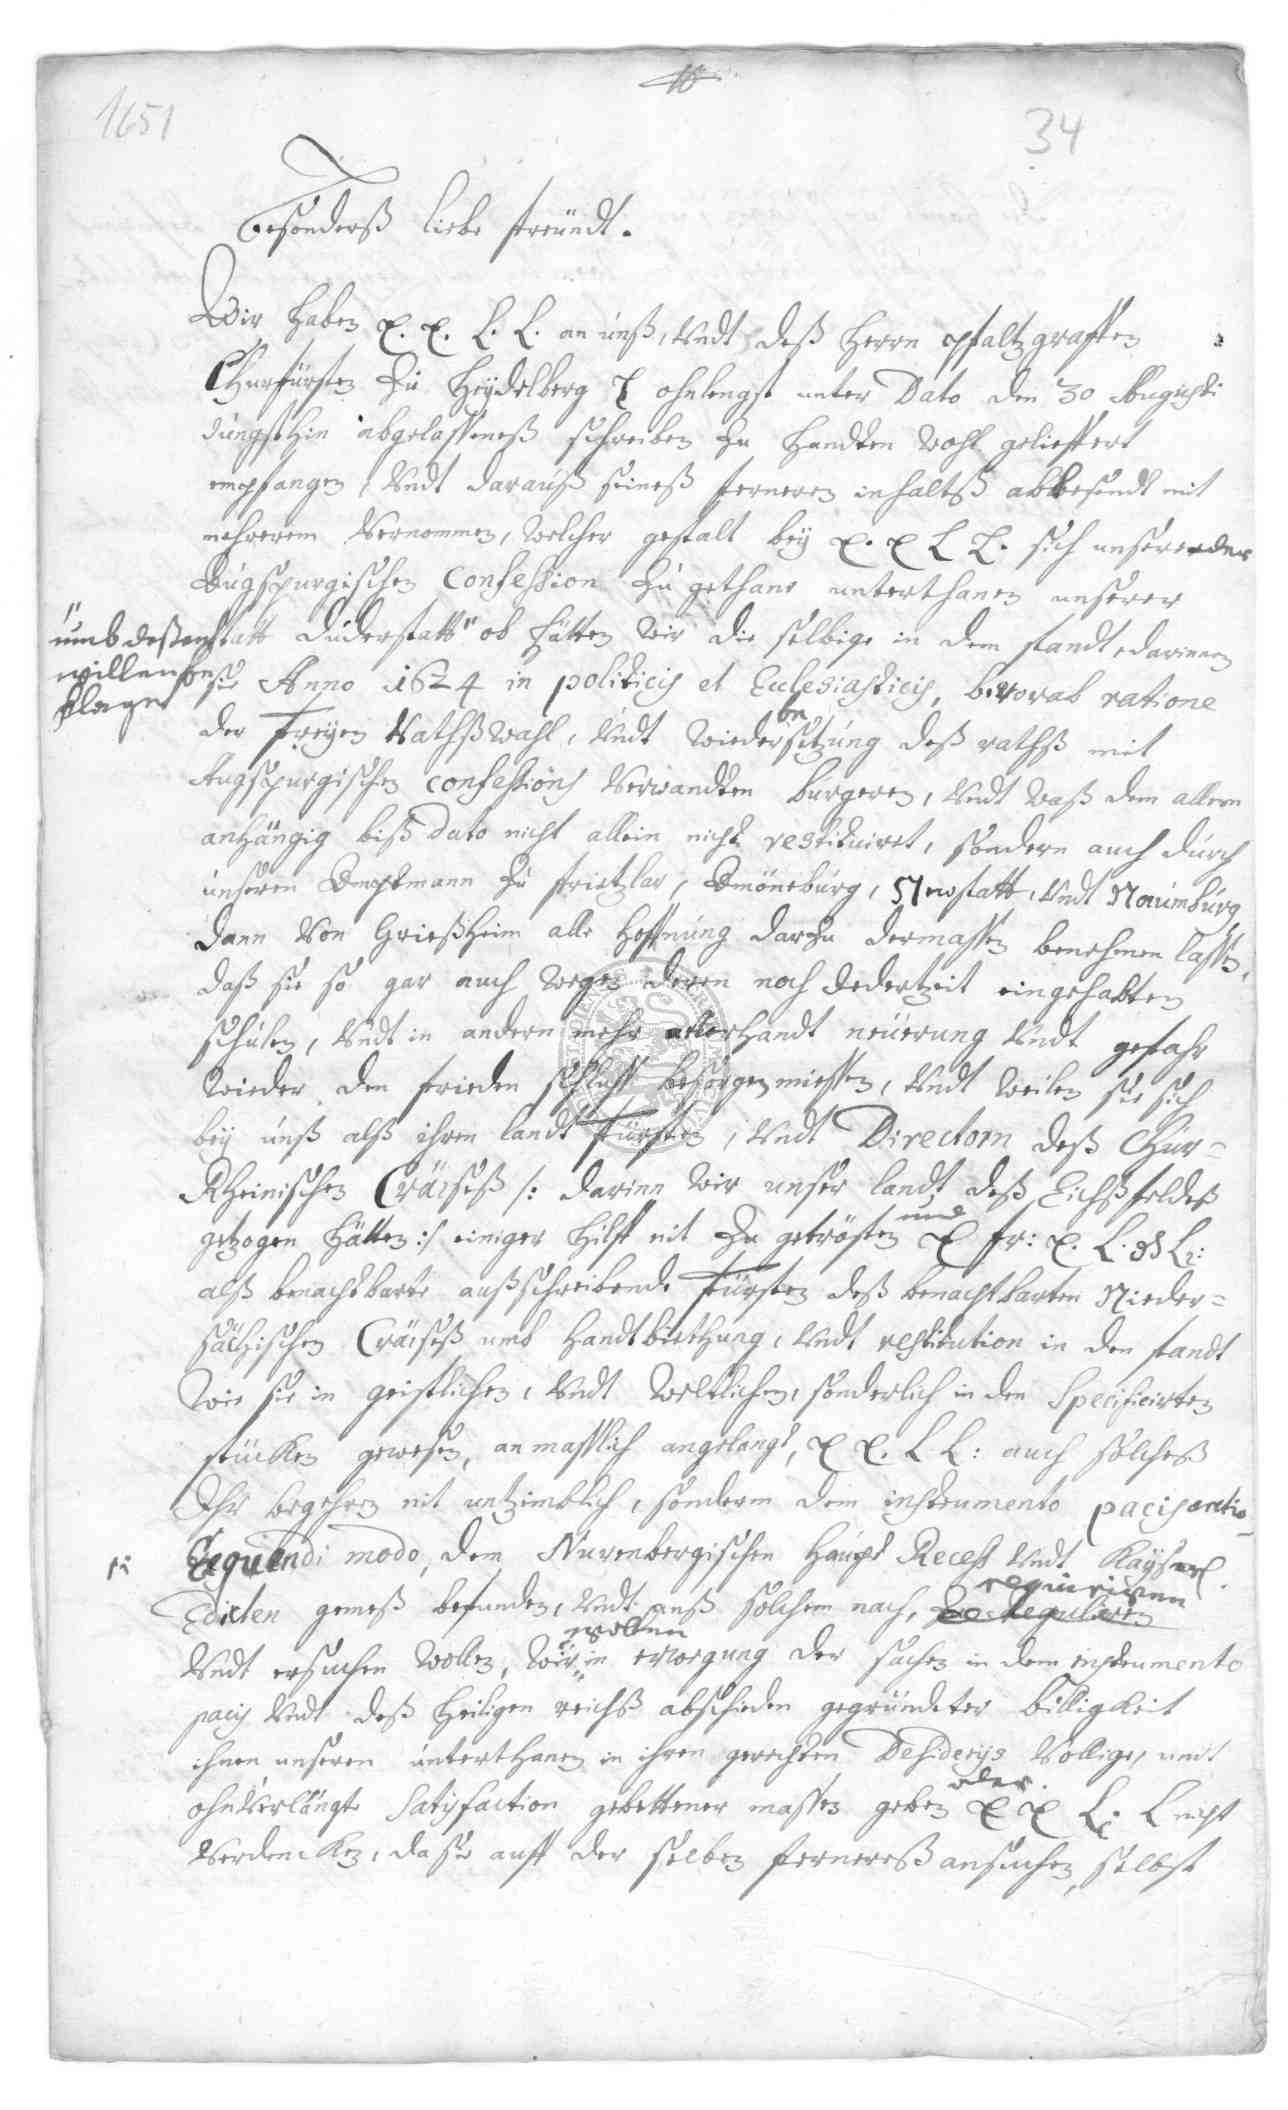 1651
34
Besonderß liebe freündt.
Wir haben E. E. L. L. an unß, Undt deß Herrn pfaltzgraffen
Churfürsten zu Heydelberg L ohnlengst unter Dato den 30 Augusti
jüngsthin abgelassenes schreiben zu Handten wohl gelieffert
empfangen, Undt darauß seineß ferneren inhaltß ablesendt mit
mehrerem Vernommen, welcher gestalt bey E. E L L. sich unsere der
Augspurgischen Confession zu gethane unterthanen unserer
statt Duderstatt " ob hätten Wir die selbige in dem standt darinnen
" umb dessent willen beklaget
sie Anno 1624 in politicis et Ecclesiasticis, bevorab ratione
der freyen Rathßwahl, Undt Wiederbesitzung deß rathß mit
Augspurgischen confessions Verwandten burgeren, Undt waß dem allem
anhängig biß dato nicht allein nicht restituiret, sondern auch durch
unseren Amptmann zu fritzlar, Amöneburg, Newstatt, Undt Naumburg
dann Von Grießheim alle hoffnung darzu dermassen benehmen lassen,
daß sie so gar auch wegen deren noch dedertzeit eingehabten
schulen, Undt in andern mehr allerhandt neüerung Undt gefahr
wieder den frieden schluß besorgen miessen, Undt weilen sie sich
bey unß alß ihren landt Fürsten, Undt Directorn deß Chur=
Rheinischen Cräiseß /: darinn Wir unser landt deß Eichßfeldeß
getzogen hätten :/ einiger hilff nit zu getrösten und E fr: E. L. L:
alß benachbarte außschreibende Fürsten deß benachbarten Nieder=
sächsischen Cräiseß umb handtbiethung, Undt restitution in den standt
wie sie in geistlichen, Undt Weltlichen, sonderlich in den Specificirten
stücken gewesen, anmasslich angelangt, E E. L L: auch solcheß
Ihr begehren nit unzimblich, sondern dem instrumento pacis arctio-
Exequendi modo, dem Nurenbergischen haupt Recess Undt Kayserl.
Edicten gemeß befunden, Undt unß solchem nach, requiriren
Undt ersuchen wollen, Wir wolten in erwegung der sachen in dem instrumento
pacis Undt deß heiligen reichß abschieden gegründeter billigkeit
ihnen unseren unterthanen in ihren gerechten Desiderys Völlige, undt
ohnVerlängte Satisfaction gebettener massen geben oder E E L. L nicht
Verdencken, da sie auff der selben fernereß ansuchen, selbst